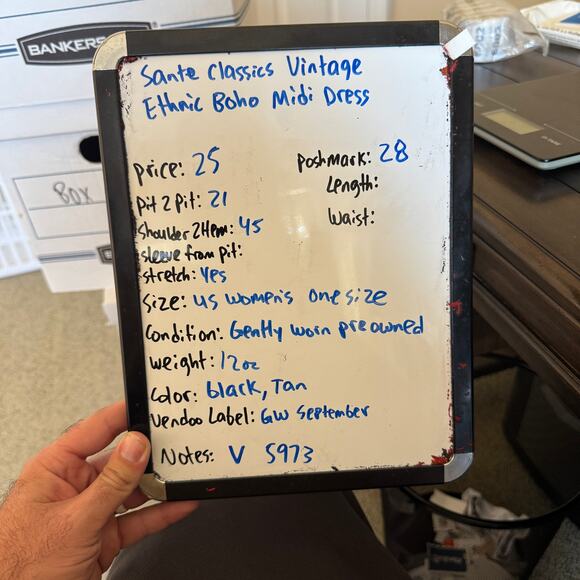 BANKERS
BOX
Sante Classics Vintage
Ethnic Boho Midi Dress
Price: 25
Poshmark: 28
Length:
Waist:
Pit 2 Pit: 21
Shoulder 2 Hem: 45
sleeve from pit:
stretch: yes
Size: US women's one size
Condition: Gently worn preowned
weight: 12oz
Color: black, Tan
Vendoo Label: GW September
Notes: V 5973